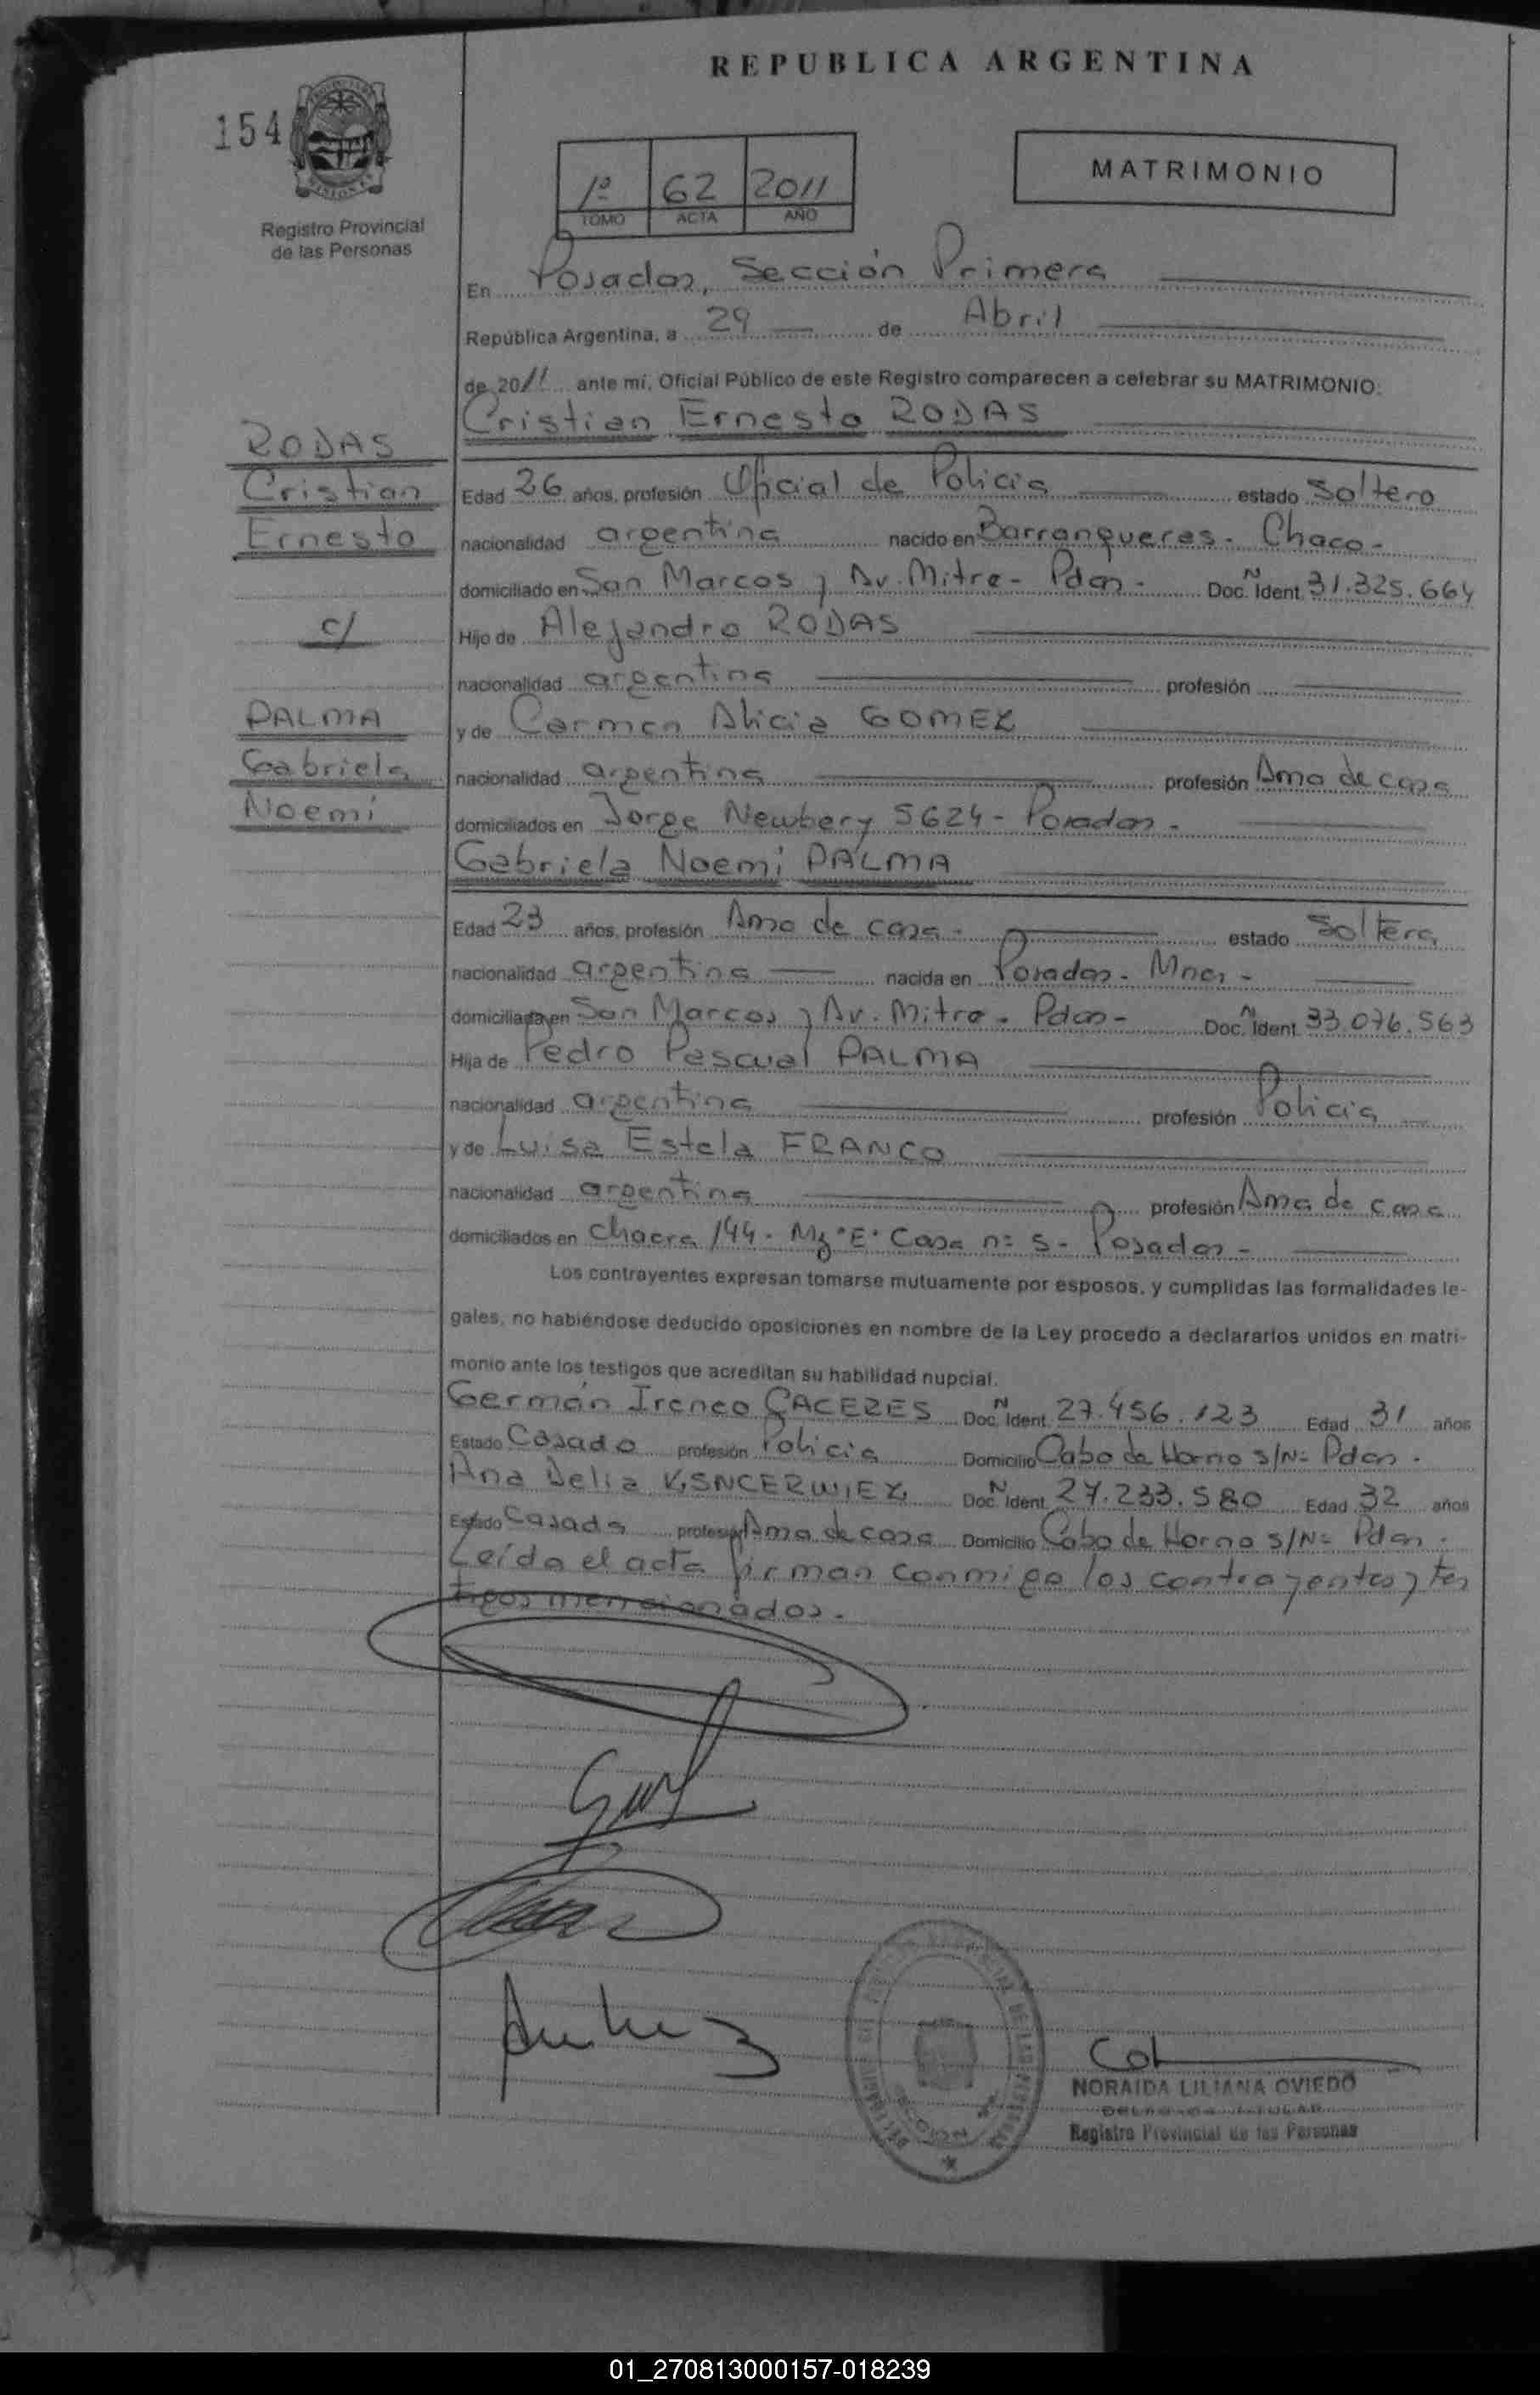 REPUBLICA ARGENTINA
154
MATRIMONIO
1º 62 2011
TOMO ACTA AÑO
Registro Provincial
de las Personas
En Posadas, Sección Primera
República Argentina, a 29 de Abril
de 2011 ante mí, Oficial Público de este Registro comparecen a celebrar su MATRIMONIO:
Cristian Ernesto RODAS
RODAS
Cristian
Ernesto
c/
PALMA
Gabriela
Noemi
Edad 26 años, profesión Oficial de Policia estado Soltero
nacionalidad argentina nacido en Barranqueras - Chaco -
domiciliado en San Marcos y Av. Mitre - Pdas - Doc. Ident. Nº 31.325.664
Hijo de Alejandro RODAS
nacionalidad argentina profesión
y de Carmen Alicia GOMEZ
nacionalidad argentina profesión Ama de casa
domiciliados en Jorge Newbery 5624 - Posadas -
Gabriela Noemi PALMA
Edad 23 años, profesión Ama de casa - estado Soltera
nacionalidad argentina nacida en Posadas - Mnes -
domiciliada en San Marcos y Av. Mitre - Pdas - Doc. Ident. Nº 33.076.563
Hija de Pedro Pascual PALMA
nacionalidad argentina profesión Policia
y de Luisa Estela FRANCO
nacionalidad argentina profesión Ama de casa
domiciliados en Chacra 144 - Mz "E" Casa nº 5 - Posadas -
Los contrayentes expresan tomarse mutuamente por esposos, y cumplidas las formalidades le-
gales, no habiéndose deducido oposiciones en nombre de la Ley procedo a declararlos unidos en matri-
monio ante los testigos que acreditan su habilidad nupcial.
Germán Ireneo CACERES Doc. Ident. Nº 27.456.123 Edad 31 años
Estado Casado profesión Policia Domicilio Cabo de Horno s/Nº Pdas -
Ana Delia Doc. Ident. Nº 27.233.580 Edad 32 años
Estado Casada profesión Ama de casa Domicilio Cabo de Horno s/Nº Pdas -
Leída el acta firman conmigo los contrayentes y tes
tigos mencionados.
NORAIDA LILIANA OVIEDO
DELEGADA TITULAR
Registro Provincial de las Personas
01_270813000157-018239